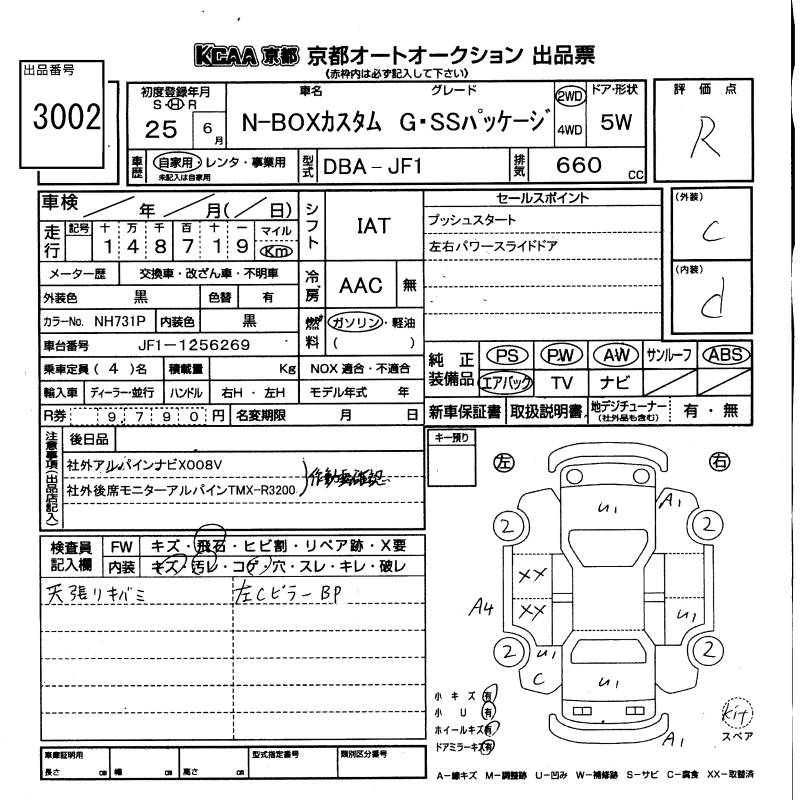 KCAA 京都 京都オートオークション 出品票
(赤枠内は必ず記入して下さい)
出品番号
3002
初度登録年月
S・H R
25 6月
車名 グレード
N-BOXカスタム G・SSパッケージ
2WD
4WD
ドア・形状
5W
評価点
R
車歴
自家用・レンタ・事業用
未記入は自家用
型式 DBA-JF1
排気 660 CC
車検 / 年 / 月(/日)
走行 記号 十 万 千 百 十 一 マイル
1 4 8 7 1 9 Km
シフト IAT
セールスポイント
プッシュスタート
左右パワースライドドア
(外装)
C
(内装)
d
メーター歴 交換車・改ざん車・不明車
冷房 AAC 無
外装色 黒 色替 有
カラーNo. NH731P 内装色 黒
燃料 ガソリン・軽油
( )
車台番号 JF1-1256269
乗車定員(4)名 積載量 Kg NOX 適合・不適合
輸入車 ディーラー・並行 ハンドル 右H・左H モデル年式 年
R券 9,790円 名変期限 月 日
純正装備品 PS PW AW サンルーフ ABS
エアバック TV ナビ
新車保証書 取扱説明書 地デジチューナー(社外品も含む) 有・無
注意事項(出品店記入)
後日品
社外アルパインナビX008V
社外後席モニターアルパインTMX-R3200
作動要確認
キー預り
左 右
検査員記入欄
FW キズ・飛石・ヒビ割・リペア跡・X要
内装 キズ・汚レ・コゲ・穴・スレ・キレ・破レ
天張リキバミ 左Cピラー BP
U1
A1
2 2
XX
XX
A4
U1
2 2
U1
C
U1
A1
小キズ 有
小U 有
ホイールキズ 有
ドアミラーキズ 有
kit
スペア
車庫証明用
長さ cm 幅 cm 高さ cm
型式指定番号
類別区分番号
A-線キズ M-調整跡 U-凹み W-補修跡 S-サビ C-腐食 XX-取替済